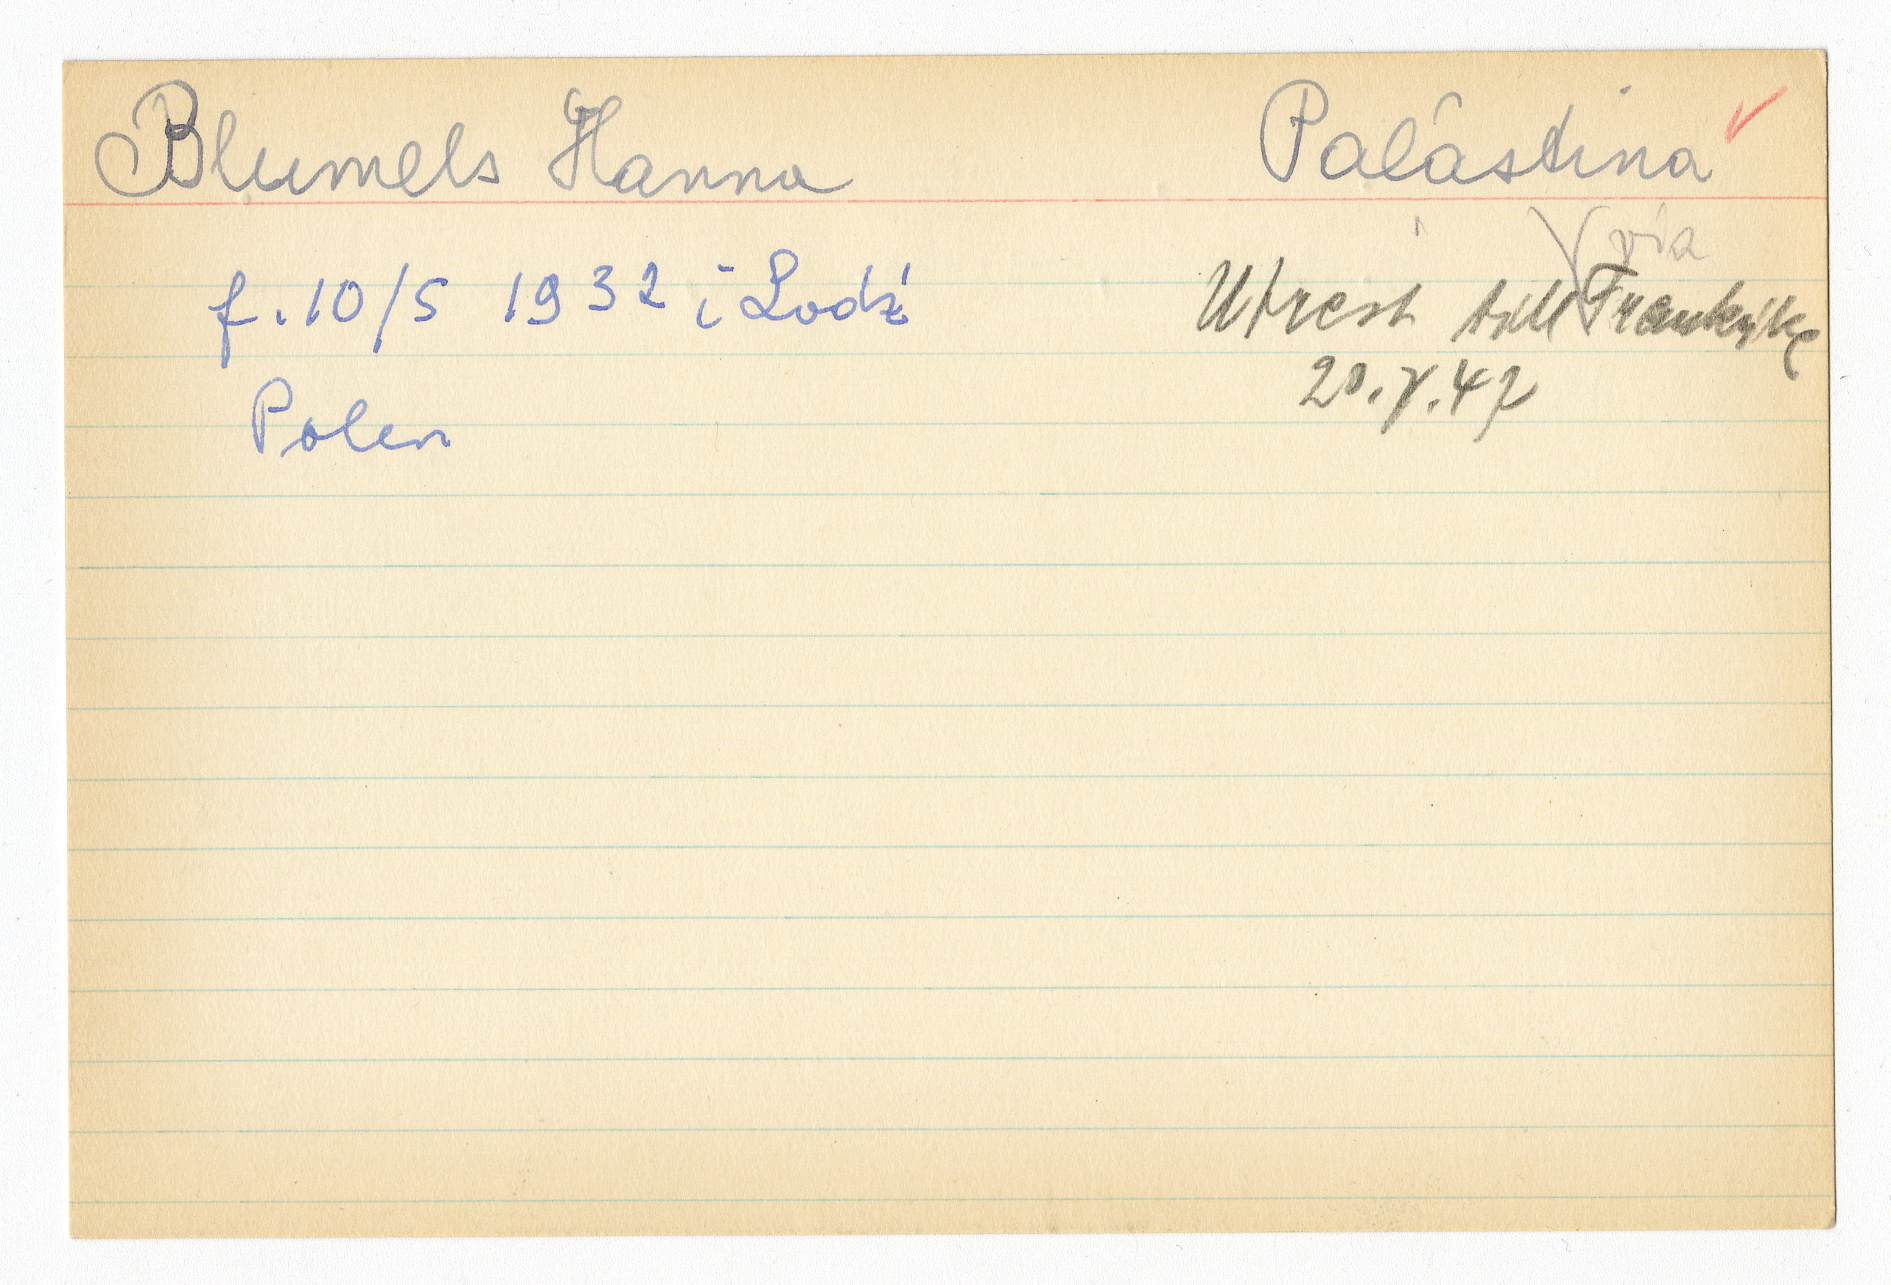 Blumels Hanna
Palästina
f. 10/5 1932 i Lodź
Polen
via
Utrest till Frankrike
20.7.47